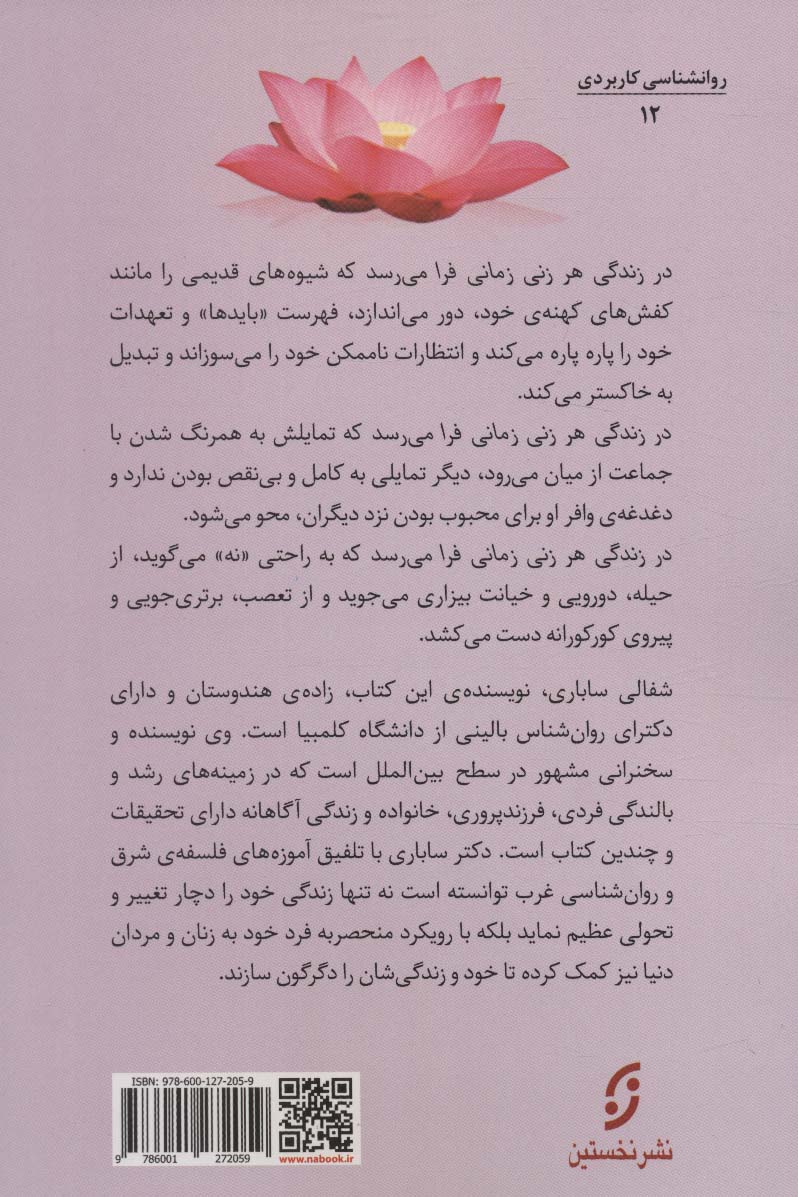 روانشناسی کاربردی
۱۲
در زندگی هر زنی زمانی فرا می‌رسد که شیوه‌های قدیمی را مانند
کفش‌های کهنه‌ی خود، دور می‌اندازد، فهرست «بایدها» و تعهدات
خود را پاره پاره می‌کند و انتظارات ناممکن خود را می‌سوزاند و تبدیل
به خاکستر می‌کند.
در زندگی هر زنی زمانی فرا می‌رسد که تمایلش به همرنگ شدن با
جماعت از میان می‌رود، دیگر تمایلی به کامل و بی‌نقص بودن ندارد و
دغدغه‌ی وافر او برای محبوب بودن نزد دیگران، محو می‌شود.
در زندگی هر زنی زمانی فرا می‌رسد که به راحتی «نه» می‌گوید، از
حیله، دورویی و خیانت بیزاری می‌جوید و از تعصب، برتری‌جویی و
پیروی کورکورانه دست می‌کشد.
شفالی ساباری، نویسنده‌ی این کتاب، زاده‌ی هندوستان و دارای
دکترای روان‌شناس بالینی از دانشگاه کلمبیا است. وی نویسنده و
سخنرانی مشهور در سطح بین‌الملل است که در زمینه‌های رشد و
بالندگی فردی، فرزندپروری، خانواده و زندگی آگاهانه دارای تحقیقات
و چندین کتاب است. دکتر ساباری با تلفیق آموزه‌های فلسفه‌ی شرق
و روان‌شناسی غرب توانسته است نه تنها زندگی خود را دچار تغییر و
تحولی عظیم نماید بلکه با رویکرد منحصربه فرد خود به زنان و مردان
دنیا نیز کمک کرده تا خود و زندگی‌شان را دگرگون سازند.
ISBN: 978-600-127-205-9
9 786001 272059
www.nabook.ir
نشر نخستین